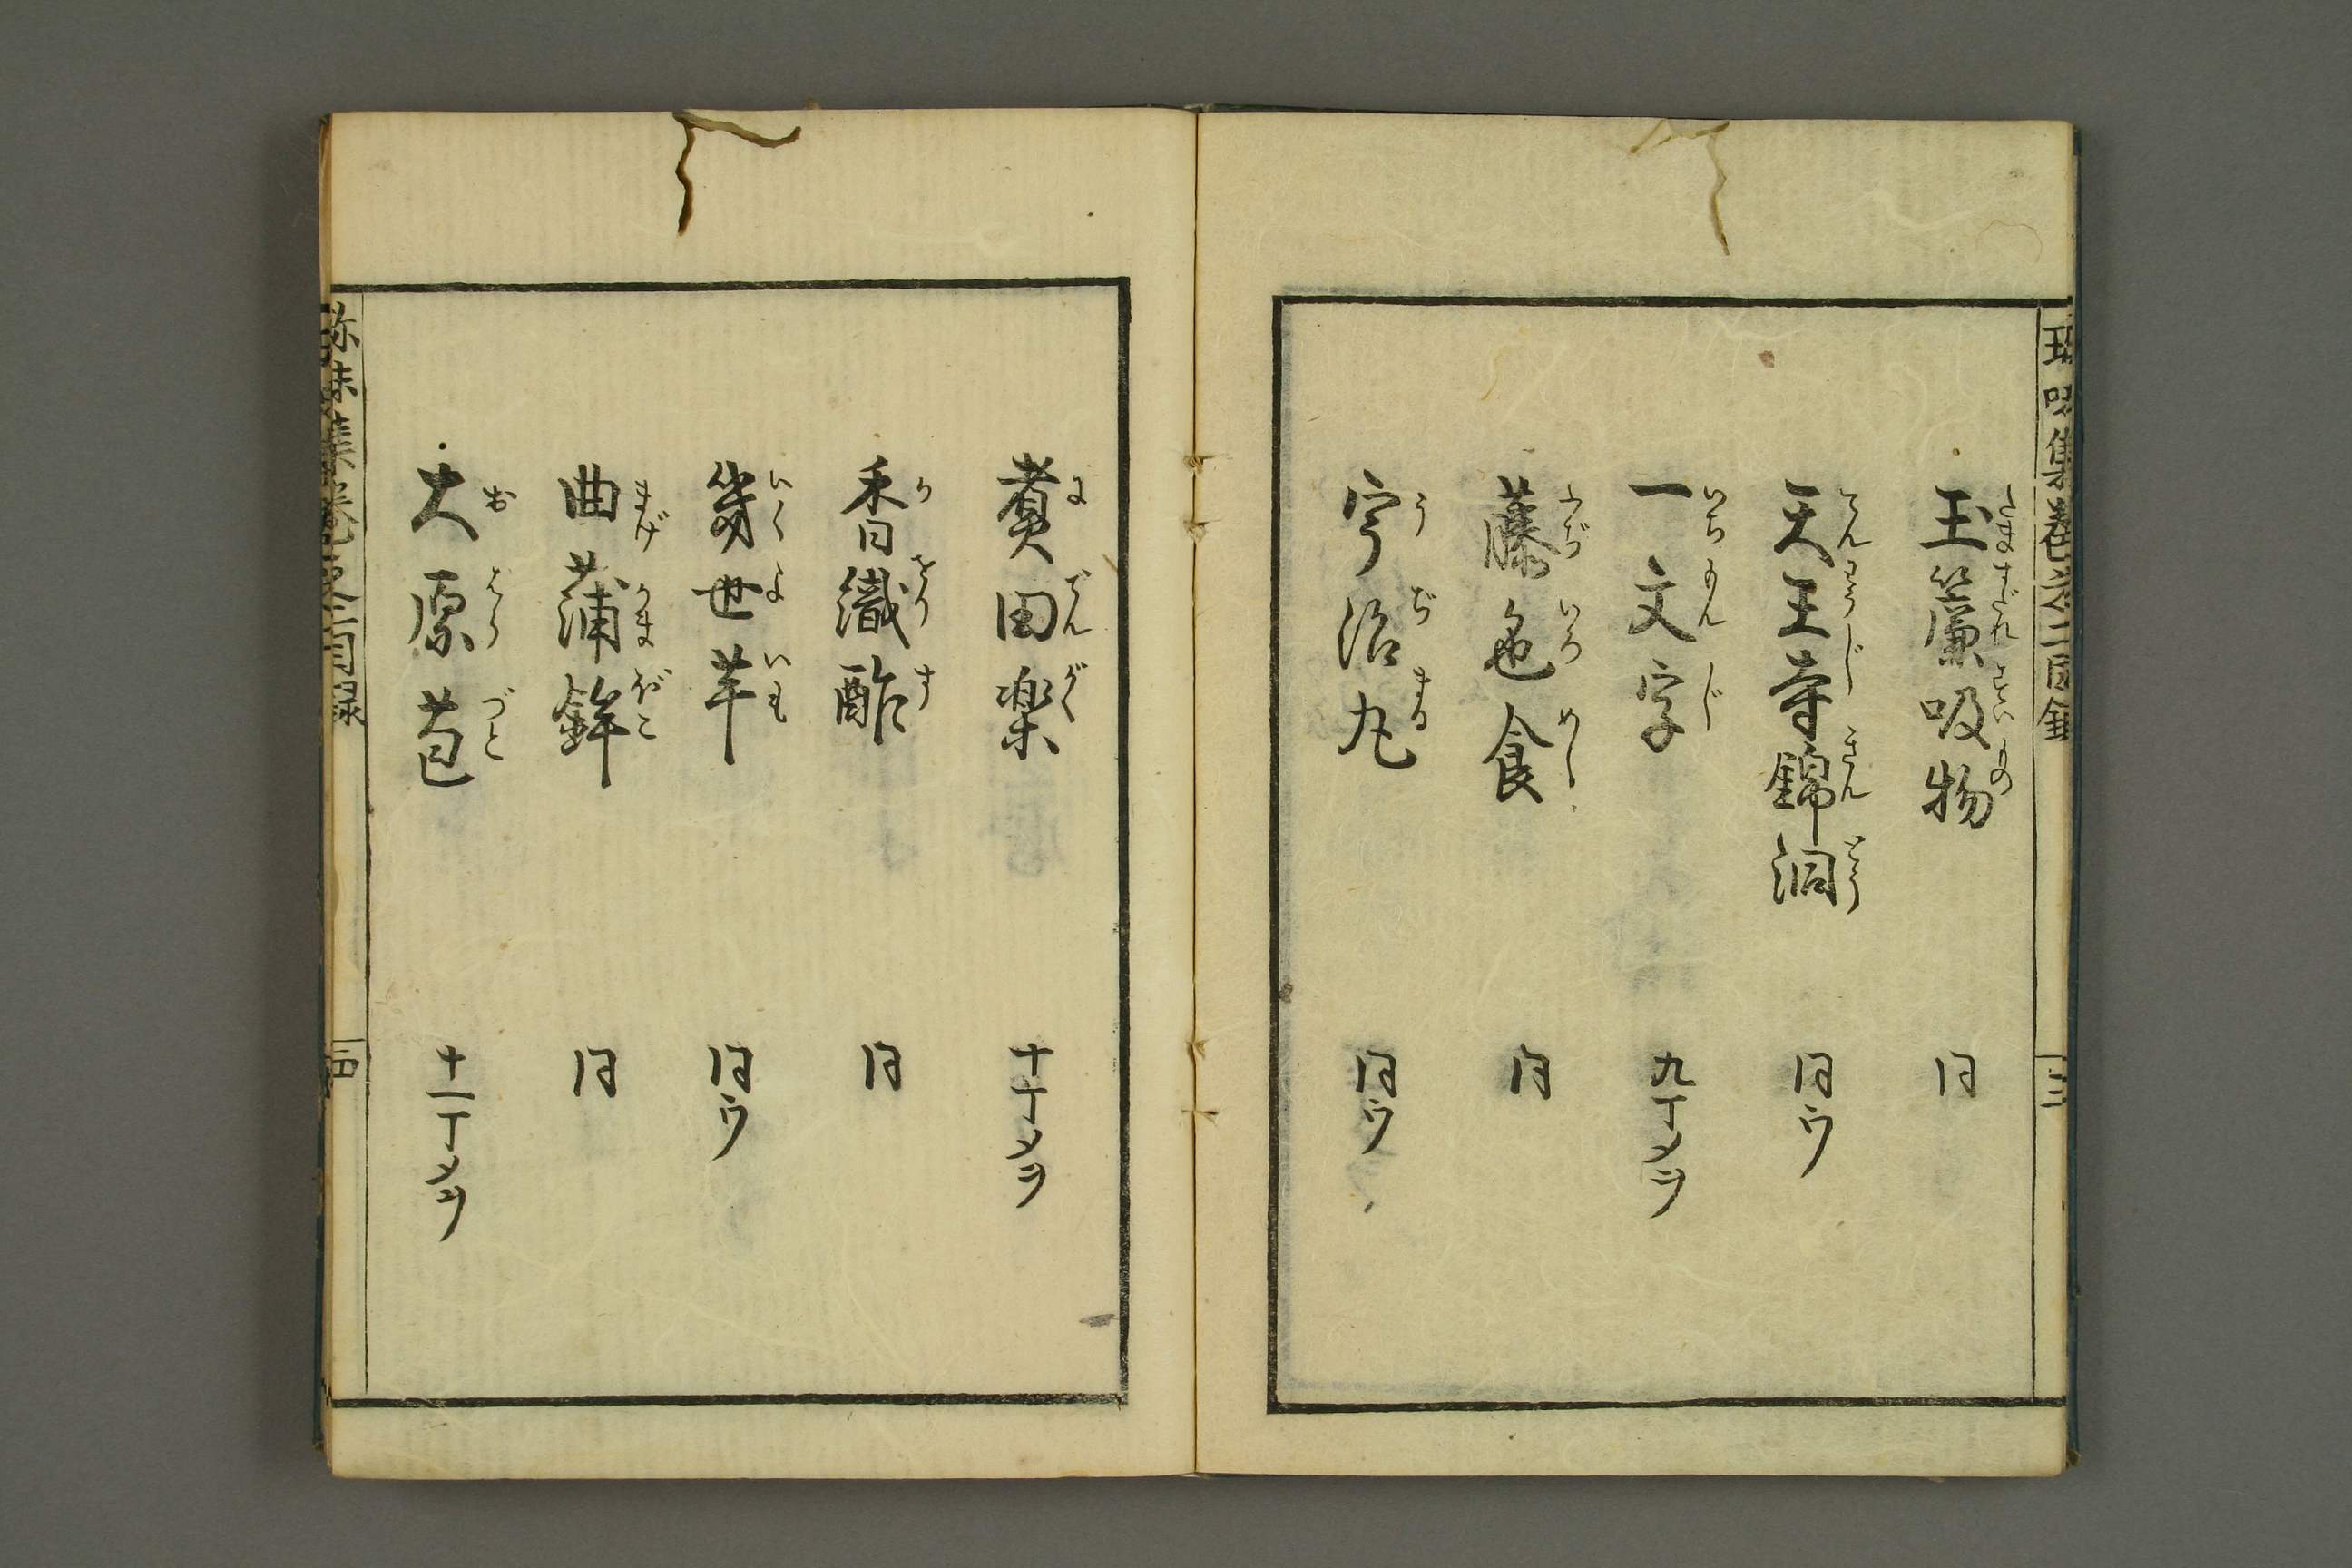 珍味集巻之二目録 三
玉簾吸物 同
たますだれすいもの
天王寺錦洞 同ウ
てんわうじきんとう
一文字 九丁メヲ
いちもんじ
藤色食 同
ふぢいろめし
宇治丸 同ウ
うぢまる
煮田楽 十丁メヲ
にでんがく
香織酢 同
かをりす
幾世芋 同ウ
いくよいも
曲蒲鉾 同
まげかまぼこ
大原苞 十一丁メヲ
おはらづと
珍味集巻之二目録 四